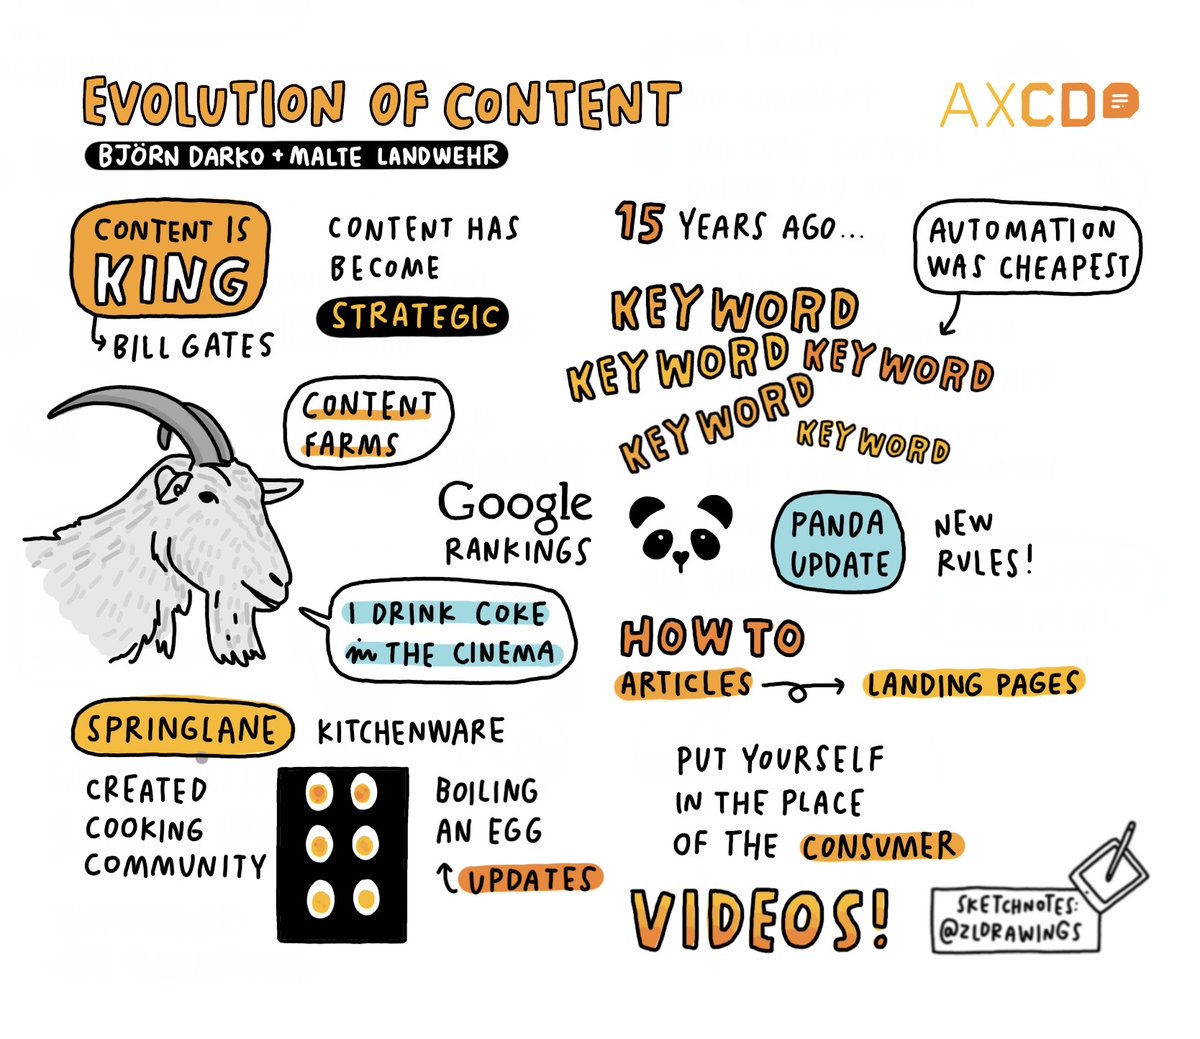 EVOLUTION OF CONTENT
BJÖRN DARKO + MALTE LANDWEHR
AXCD
CONTENT IS
KING
BILL GATES
CONTENT HAS
BECOME
STRATEGIC
CONTENT
FARMS
Google
RANKINGS
I DRINK COKE
in THE CINEMA
SPRINGLANE
KITCHENWARE
CREATED
COOKING
COMMUNITY
BOILING
AN EGG
UPDATES
15 YEARS AGO...
AUTOMATION
WAS CHEAPEST
KEYWORD
KEYWORD
KEYWORD
KEYWORD
KEYWORD
PANDA
UPDATE
NEW
RULES!
HOW TO
ARTICLES
LANDING PAGES
PUT YOURSELF
IN THE PLACE
OF THE CONSUMER
VIDEOS!
SKETCHNOTES:
@ZLDRAWINGS